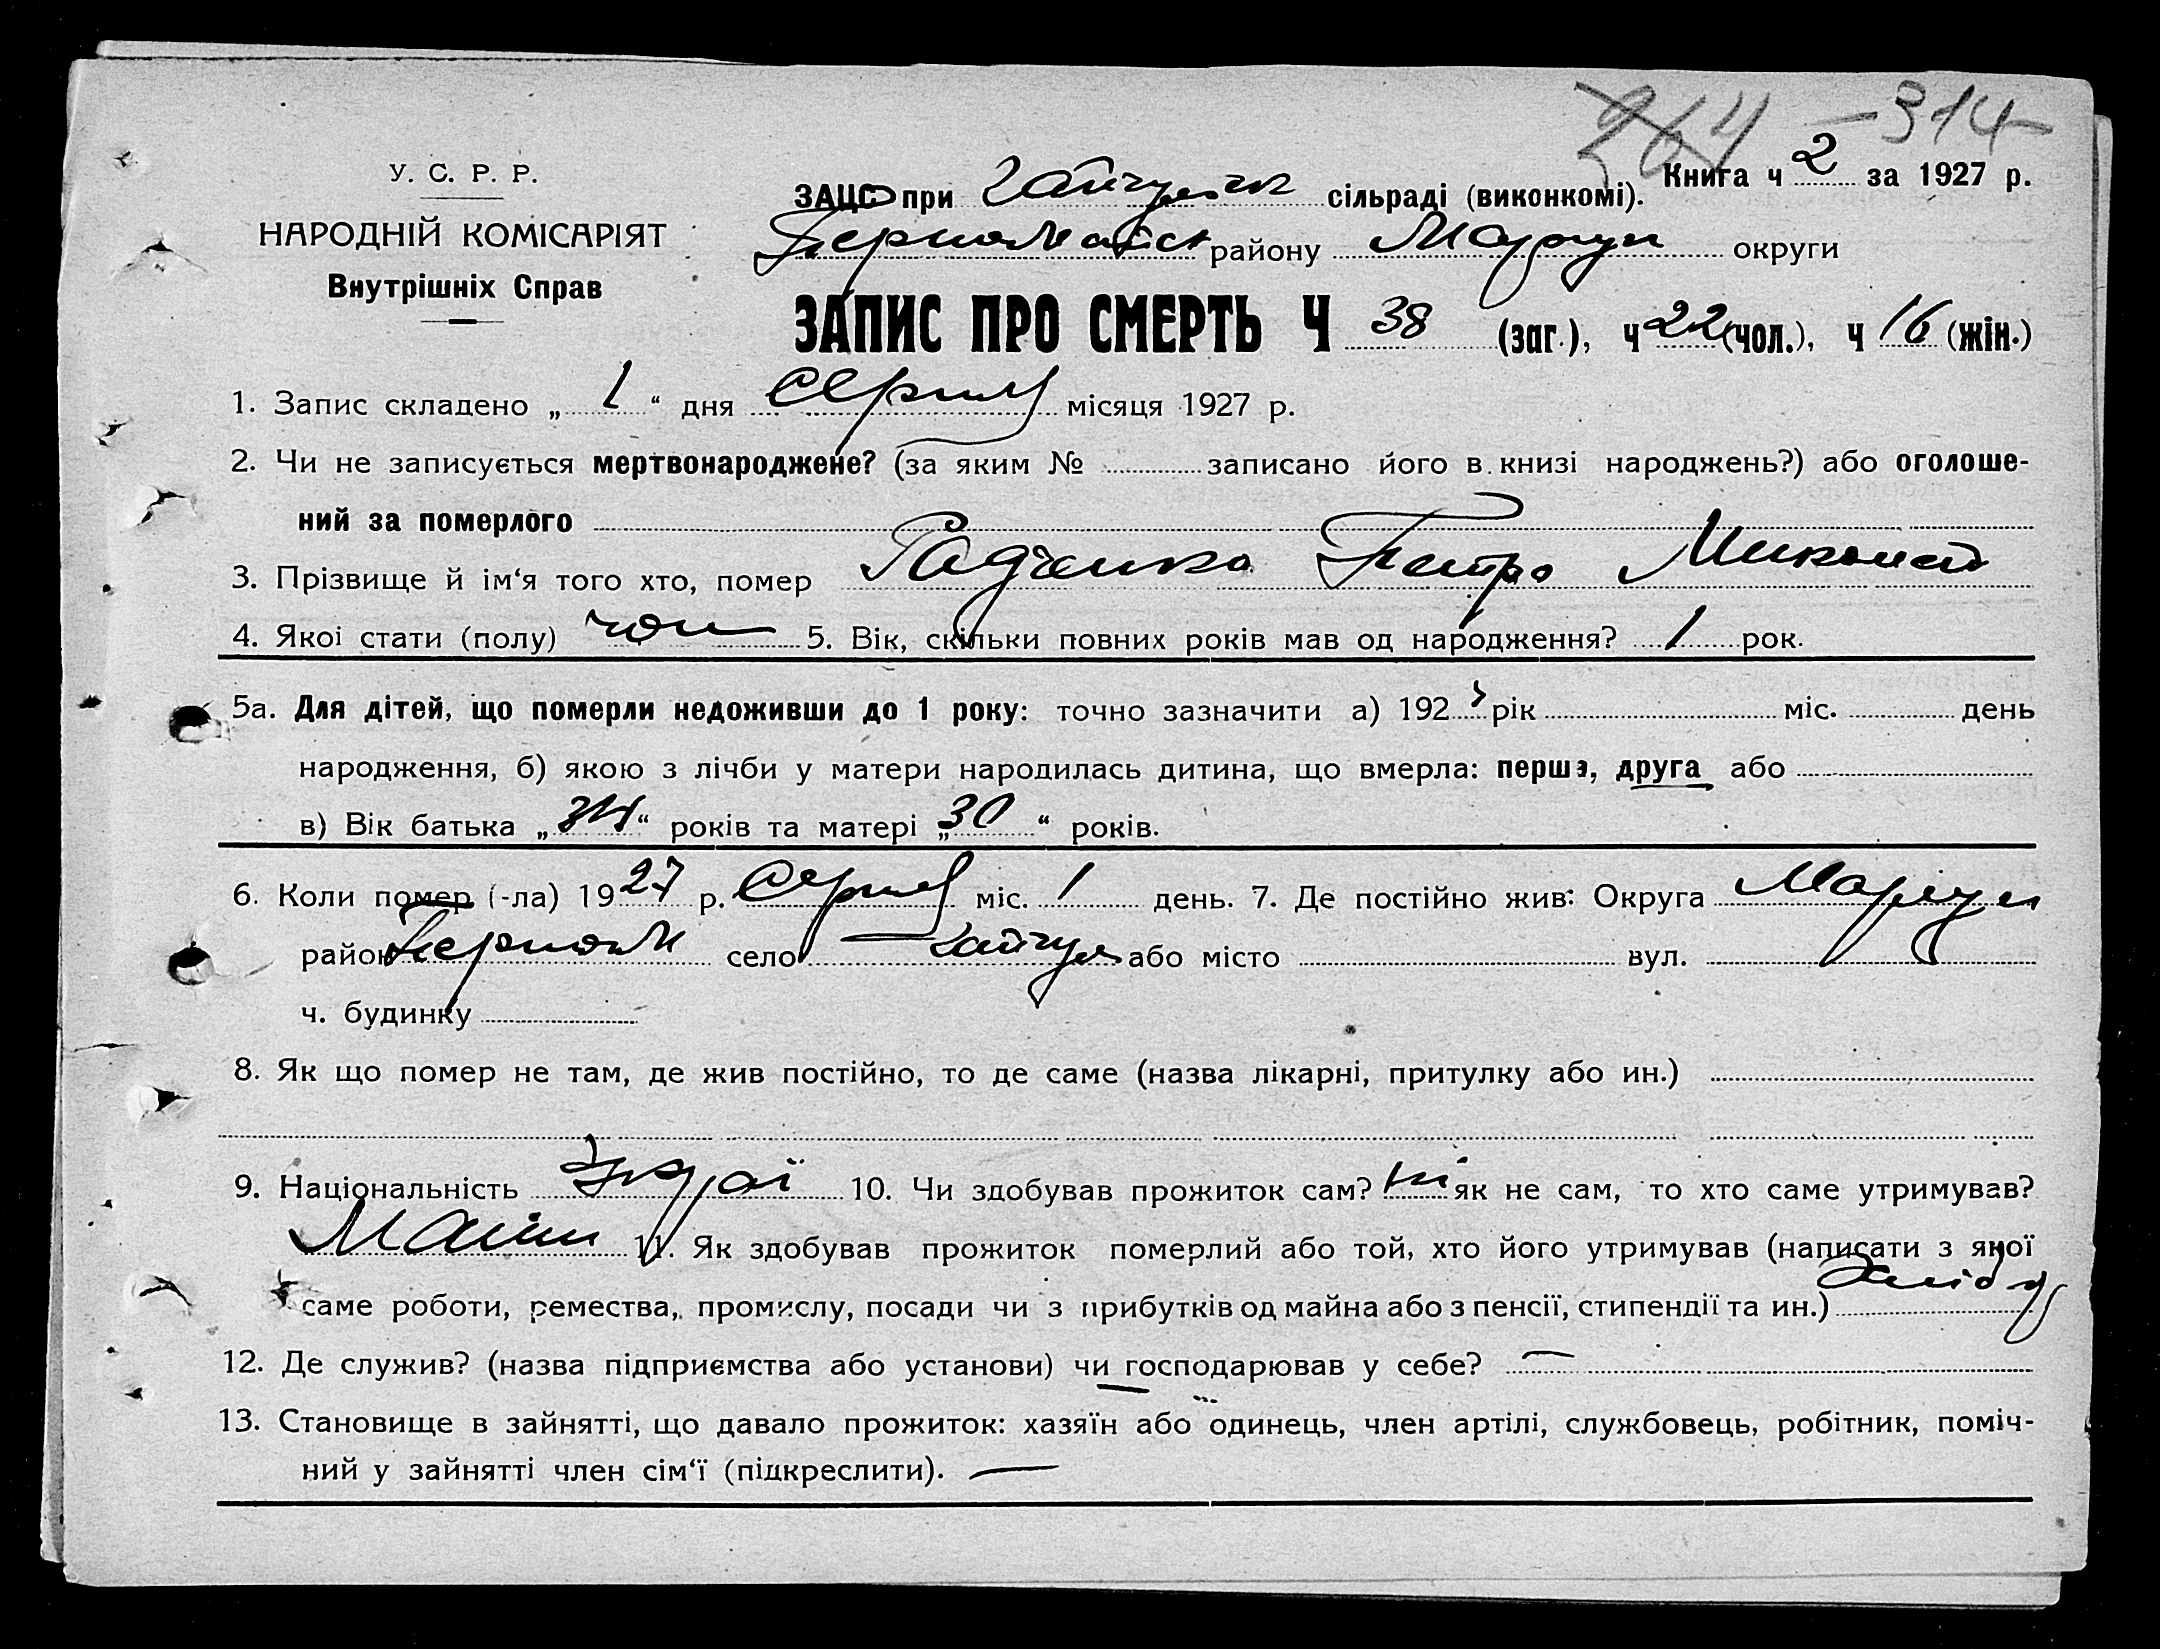 264 – 314
У. С. Р. Р.
НАРОДНІЙ КОМІСАРІЯТ
Внутрішніх Справ
Книга ч 2 за 1927 р.
ЗАЦС при Гайчулськ сільраді (виконкомі).
Першомайськ району Маріуп округи
ЗАПИС ПРО СМЕРТЬ Ч 38 (заг.), ч 22 (чол.), ч 16 (жін.)
1. Запис складено „ 1 “ дня Серпня місяця 1927 р.
2. Чи не записується мертвонароджене? (за яким № записано його в книзі народжень?) або оголоше-
ний за померлого
3. Прізвище й ім‘я того хто, помер Радченко Петро Миколай
4. Якоі стати (полу) чол 5. Вік, скільки повних років мав од народження? 1 рок.
5а. Для дітей, що померли недоживши до 1 року: точно зазначити а) 192 рік міс. день
народження, б) якою з лічби у матери народилась дитина, що вмерла: перша, друга або
в) Вік батька „ 34 “ років та матері „ 30 “ років.
6. Коли помер (-ла) 1927 р. Серпня міс. 1 день. 7. Де постійно жив: Округа Маріуп
район Першом село Гайчул або місто вул.
ч. будинку
8. Як що помер не там, де жив постійно, то де саме (назва лікарні, притулку або ин.)
9. Національність Украї 10. Чи здобував прожиток сам? Ні як не сам, то хто саме утримував?
11. Як здобував прожиток померлий або той, хто його утримував (написати з якої
саме роботи, ремества, промислу, посади чи з прибутків од майна або з пенсії, стипендії та ин.) Хлібор
12. Де служив? (назва підприємства або установи) чи господарював у себе? —
13. Становище в зайнятті, що давало прожиток: хазяїн або одинець, член артілі, службовець, робітник, поміч-
ний у зайнятті член сім‘ї (підкреслити). —